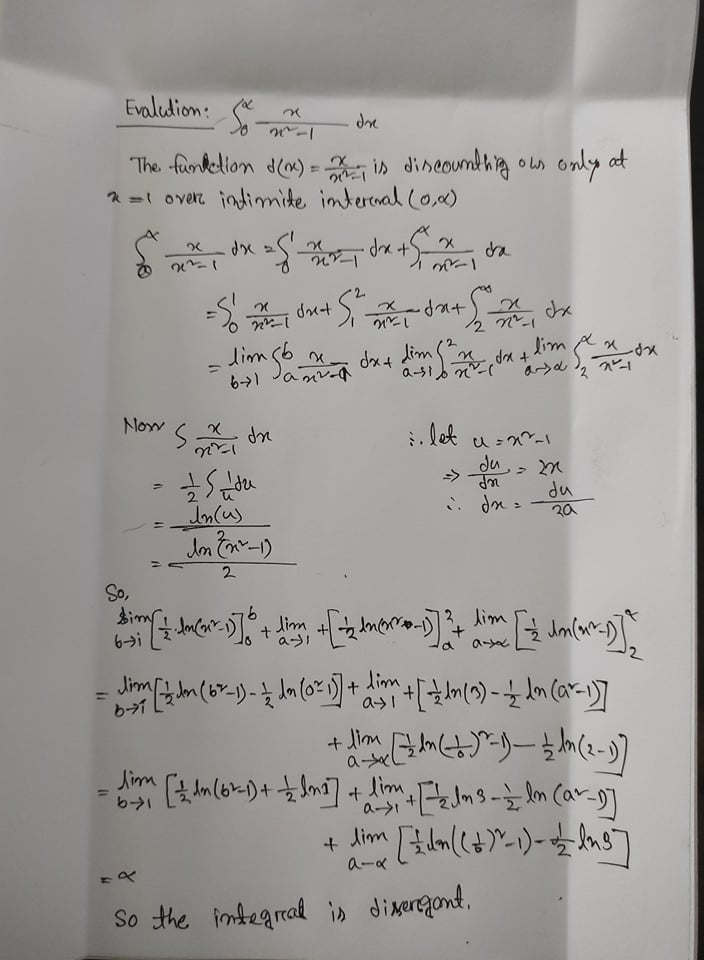 Evalution: ∫₀^∝ x/(x²-1) dx
The function f(x) = x/(x²-1) is discounthig ous only at
x = 1 over intimite interval (0,∝)
∫₀^∝ x/(x²-1) dx = ∫₀¹ x/(x²-1) dx + ∫₁^∝ x/(x²-1) dx
= ∫₀¹ x/(x²-1) dx + ∫₁² x/(x²-1) dx + ∫₂^∞ x/(x²-1) dx
= lim b→1 ∫ₐᵇ x/(x²-1) dx + lim a→1 ∫₀² x/(x²-1) dx + lim a→∝ ∫₂^∝ x/(x²-1) dx
Now ∫ x/(x²-1) dx ∴ let u = x²-1
= 1/2 ∫ 1/u du ⇒ du/dx = 2x
= ln(u)/2 ∴ dx = du/2a
= ln(x²-1)/2
So,
lim b→1 [1/2 ln(x²-1)]₀ᵇ + lim a→1 + [1/2 ln(x²-1)]ₐ² + lim a→∝ [1/2 ln(x²-1)]₂^∝
= lim b→1 [1/2 ln(b²-1) - 1/2 ln(0²-1)] + lim a→1 + [1/2 ln(3) - 1/2 ln(a²-1)]
+ lim a→∝ [1/2 ln(1/0)²-1) - 1/2 ln(2-1)]
= lim b→1 [1/2 ln(b²-1) + 1/2 ln1] + lim a→1 + [1/2 ln3 - 1/2 ln(a²-1)]
+ lim a-∝ [1/2 ln((1/0)²-1) - 1/2 ln3]
= ∝
So the integral is divergant.